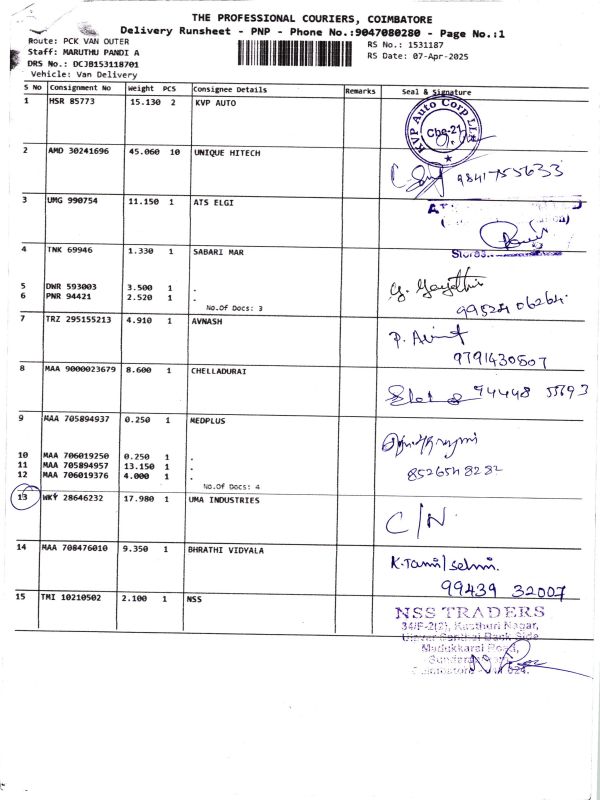 THE PROFESSIONAL COURIERS, COIMBATORE
Delivery Runsheet - PNP - Phone No.:9047080280 - Page No.:1
Route: PCK VAN OUTER
RS No.: 1531187
Staff: MARUTHU PANDI A
RS Date: 07-Apr-2025
DRS No.: DCJB153118701
Vehicle: Van Delivery
S No Consignment No Weight PCS Consignee Details Remarks Seal & Signature
1 HSR 85773 15.130 2 KVP AUTO
KVP Auto Corp LLP
Cbe-21
2 AMD 30241696 45.060 10 UNIQUE HITECH
9841755633
3 UMG 990754 11.150 1 ATS ELGI
Stores
4 TNK 69946 1.330 1 SABARI MAR
5 DNR 593003 3.500 1 .
6 PNR 94421 2.520 1 .
No.Of Docs: 3
G. Gayathri
9952406264
7 TRZ 295155213 4.910 1 AVNASH
9791430507
8 MAA 9000023679 8.600 1 CHELLADURAI
94448 55693
9 MAA 705894937 0.250 1 MEDPLUS
10 MAA 706019250 0.250 1 .
11 MAA 705894957 13.150 1 .
12 MAA 706019376 4.000 1 .
No.Of Docs: 4
8526548282
13 WKY 28646232 17.980 1 UMA INDUSTRIES
C/N
14 MAA 708476010 9.350 1 BHRATHI VIDYALA
K.Tamil selvi.
99439 32007
15 TMI 10210502 2.100 1 NSS
NSS TRADERS
34/F-2(2), Kasthuri Nagar,
Central Bank Side
Madukkarai Road,